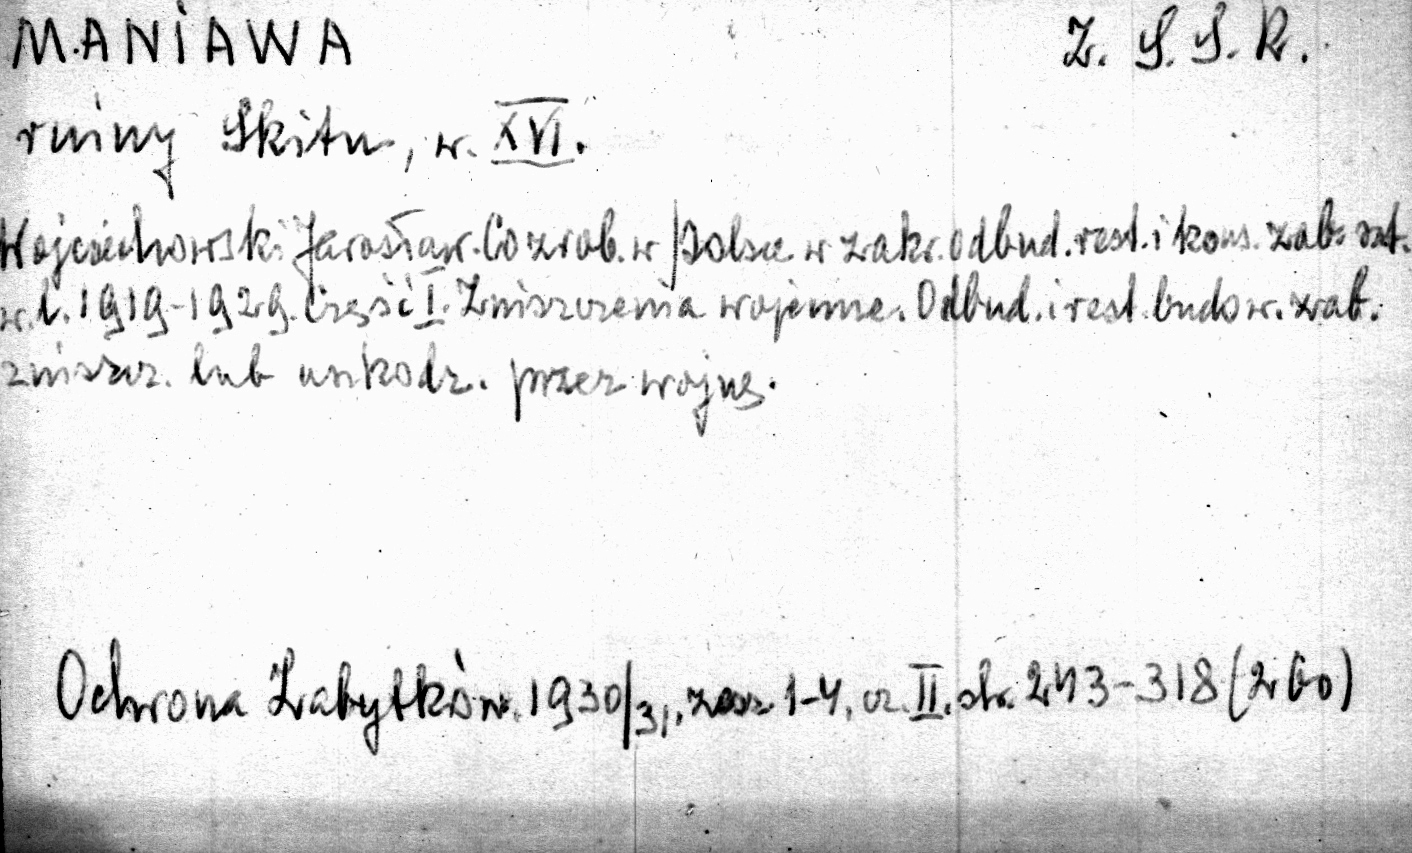 MANIAWA Z. S. S. R.
ruiny Skitu, w. XVI.
Wojciechowski Jarosław. Co zrob. w Polsce w zakr. odbud. rest. i kons. zab. szt.
w. l. 1919-1929. Część I. Zniszczenia wojenne. Odbud. i rest. budow. zab.
zniszcz. lub uszkodz. przez wojnę.
Ochrona Zabytków. 1930/31, zesz. 1-4, cz. II. str. 243-318 (260)